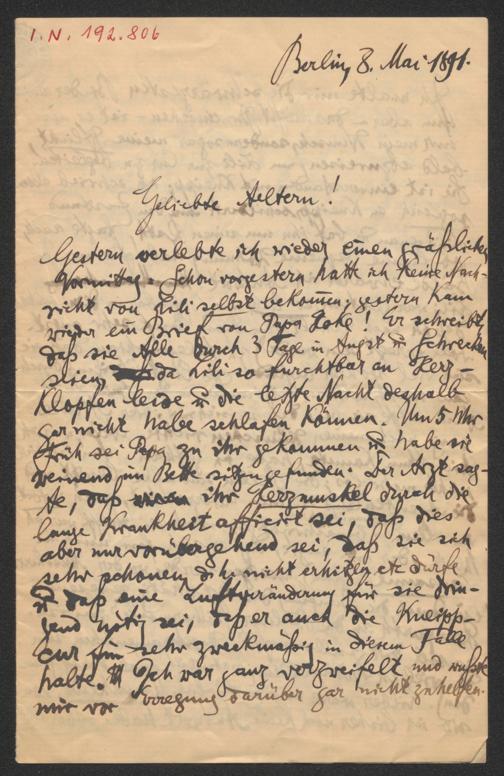 I. N. 192.806
Berlin, 8. Mai 1891.
Geliebte Aeltern!
Gestern verlebte ich wieder einen gräßlichen
Vormittag. Schon vorgestern hatte ich keine Nach-
richt von Lili selbst bekommen; gestern kam
wieder ein Brief von Papa Hoke! Er schreibt,
daß sie Alle durch 3 Tage in Angst u Schrecken
seien, da Lili so furchtbar an Herz-
klopfen leide u die letzte Nacht deshalb
gar nicht habe schlafen können. Um 5 Uhr
Früh sei Papa zu ihr gekommen u habe sie
weinend im Bette sitzen gefunden. Der Arzt sag-
te, daß ihr Herzmuskel durch die
lange Krankheit afficirt sei, daß dies
aber nur vorübergehend sei, daß sie sich
sehr schonen, d. h. nicht erhitzen etc dürfe
u daß eine Luftveränderung für sie drin-
gend nötig sei, daß er auch die Kneipp-
cur für sehr zweckmäßig in diesem Falle
halte. Ich war ganz verzweifelt und wußte
mir vor Erregung darüber gar nicht zu helfen.